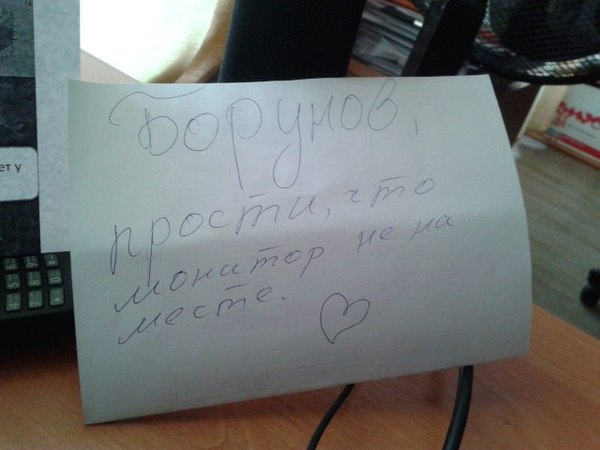 Борунов,
прости, что
монитор не на
месте.
ет у